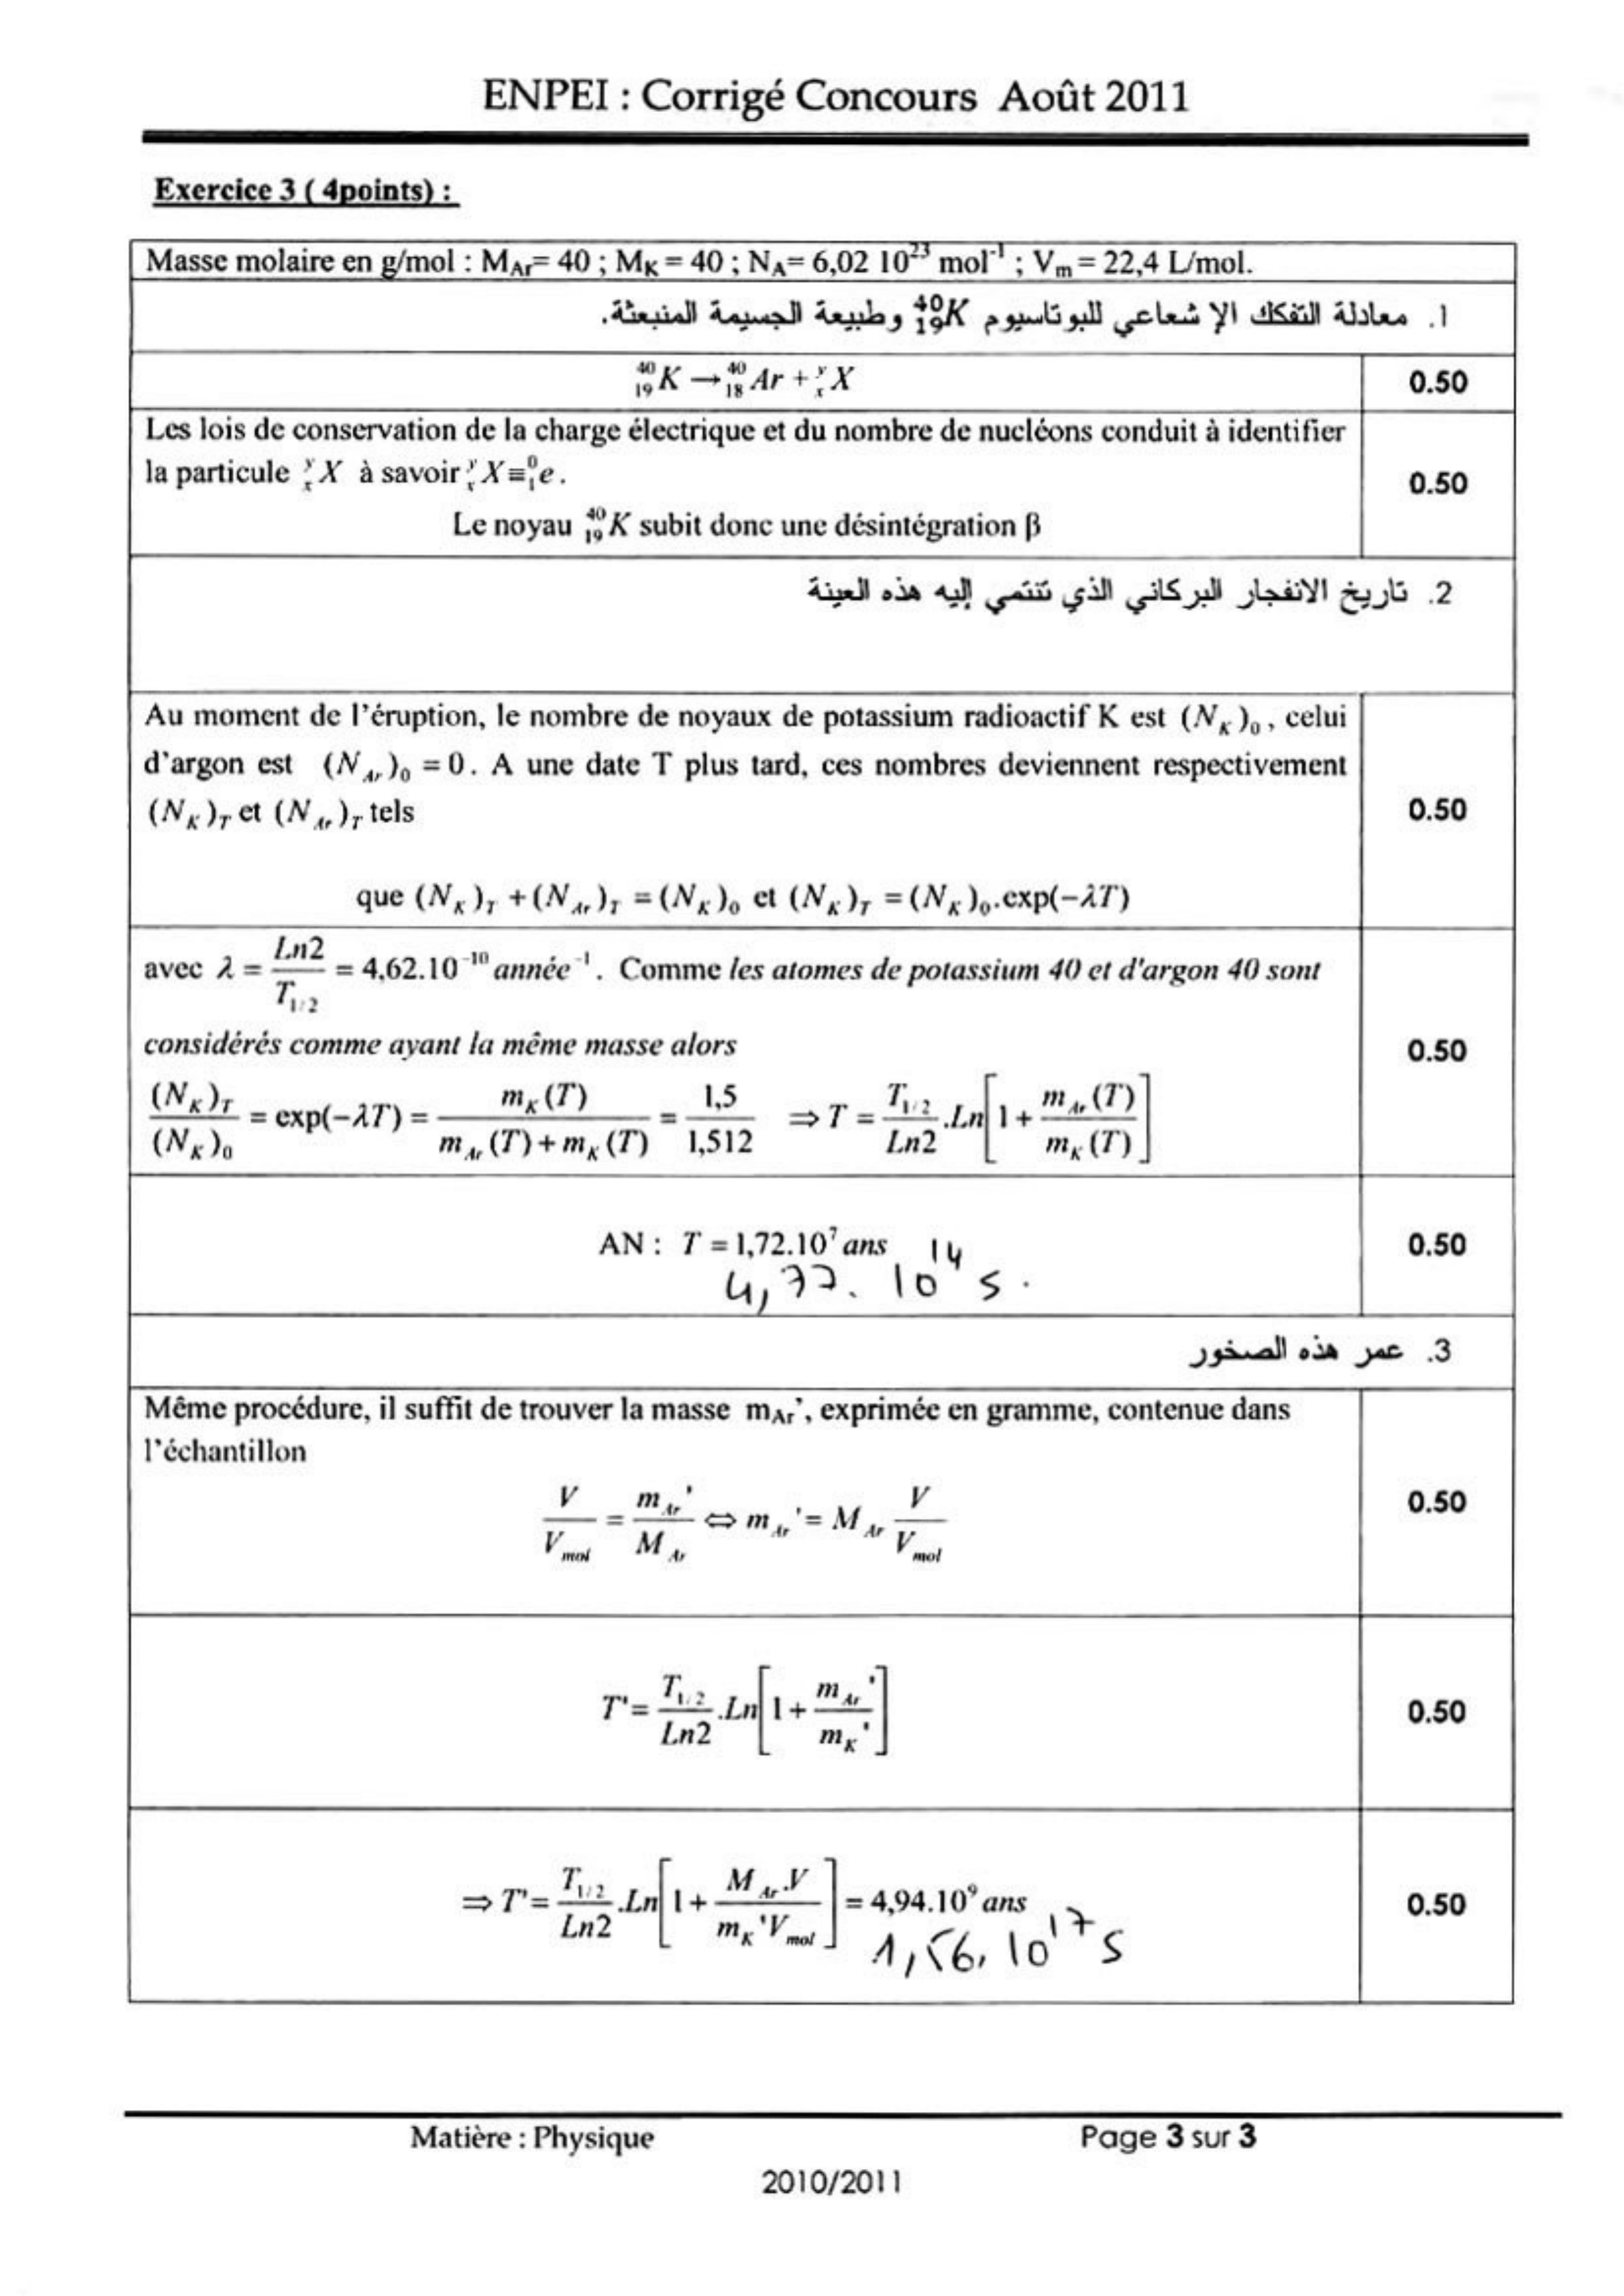 ENPEI : Corrigé Concours Août 2011
Exercice 3 ( 4points) :
Masse molaire en g/mol : M_Ar= 40 ; M_K = 40 ; N_A= 6,02 10^23 mol^-1 ; V_m = 22,4 L/mol.
1. معادلة التفكك الإ شعاعي للبوتاسيوم ^40_19K وطبيعة الجسيمة المنبعثة.
^40_19 K → ^40_18 Ar + ^y_x X
0.50
Les lois de conservation de la charge électrique et du nombre de nucléons conduit à identifier
la particule ^y_x X à savoir ^y_x X ≡ ^0_1 e .
0.50
Le noyau ^40_19 K subit donc une désintégration β
2. تاريخ الانفجار البركاني الذي تنتمي إليه هذه العينة
Au moment de l'éruption, le nombre de noyaux de potassium radioactif K est (N_K)_0 , celui
d'argon est (N_Ar)_0 = 0. A une date T plus tard, ces nombres deviennent respectivement
(N_K)_T et (N_Ar)_T tels
0.50
que (N_K)_T + (N_Ar)_T = (N_K)_0 et (N_K)_T = (N_K)_0.exp(−λT)
avec λ = Ln2 / T_1/2 = 4,62.10^-10 année^-1 . Comme les atomes de potassium 40 et d'argon 40 sont
considérés comme ayant la même masse alors
0.50
(N_K)_T / (N_K)_0 = exp(−λT) = m_K(T) / (m_Ar(T) + m_K(T)) = 1,5 / 1,512 ⇒ T = T_1/2 / Ln2 .Ln[1 + m_Ar(T) / m_K(T)]
AN : T = 1,72.10^7 ans
0.50
4,77. 10^14 s .
3. عمر هذه الصخور
Même procédure, il suffit de trouver la masse m_Ar', exprimée en gramme, contenue dans
l'échantillon
V / V_mol = m_Ar' / M_Ar ⇔ m_Ar' = M_Ar V / V_mol
0.50
T' = T_1/2 / Ln2 .Ln[1 + m_Ar' / m_K']
0.50
⇒ T' = T_1/2 / Ln2 .Ln[1 + M_Ar.V / m_K'V_mol] = 4,94.10^9 ans
0.50
1,56, 10^17 s
Matière : Physique
Page 3 sur 3
2010/2011